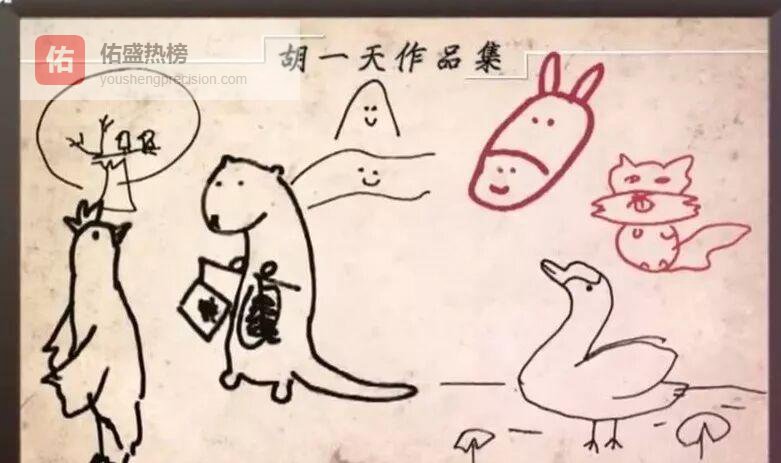 佑
佑盛热榜
youshengprecision.com
胡一天作品集